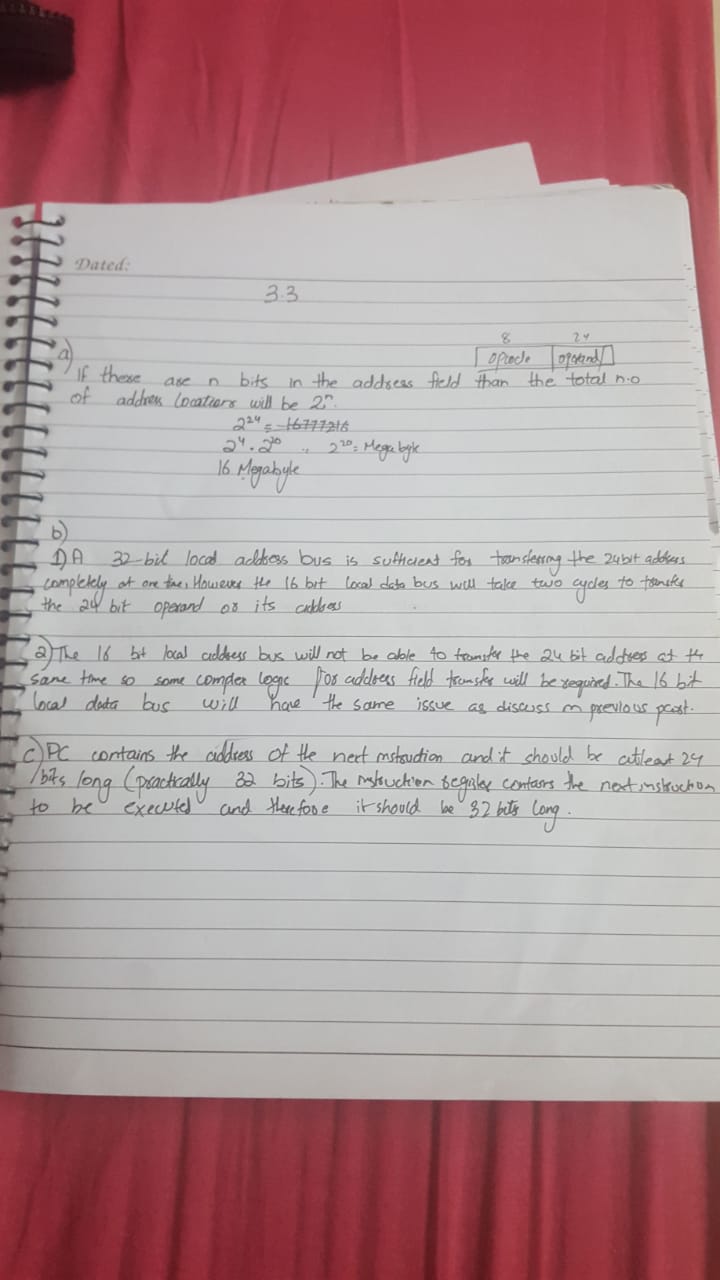 Dated:
3.3
8 24
opcode operand
a)
If there are n bits in the address field than the total n.o
of address locations will be 2ⁿ.
2²⁴ = 16777216
2⁴ . 2²⁰ ∵ 2²⁰ = Mega byte
16 Megabyte
b)
1) A 32-bit local address bus is sufficient for transferring the 24 bit address
completely at one time, However the 16 bit local data bus will take two cycles to transfer
the 24 bit operand or its address
2) The 16 bit local address bus will not be able to transfer the 24 bit address at the
same time so some complex logic for address field transfer will be required. The 16 bit
local data bus will have the same issue as discuss in previous part.
c) PC contains the address of the next instruction and it should be atleast 24
bits long (practically 32 bits). The instruction register contains the next instruction
to be executed and therefore it should be 32 bits long.